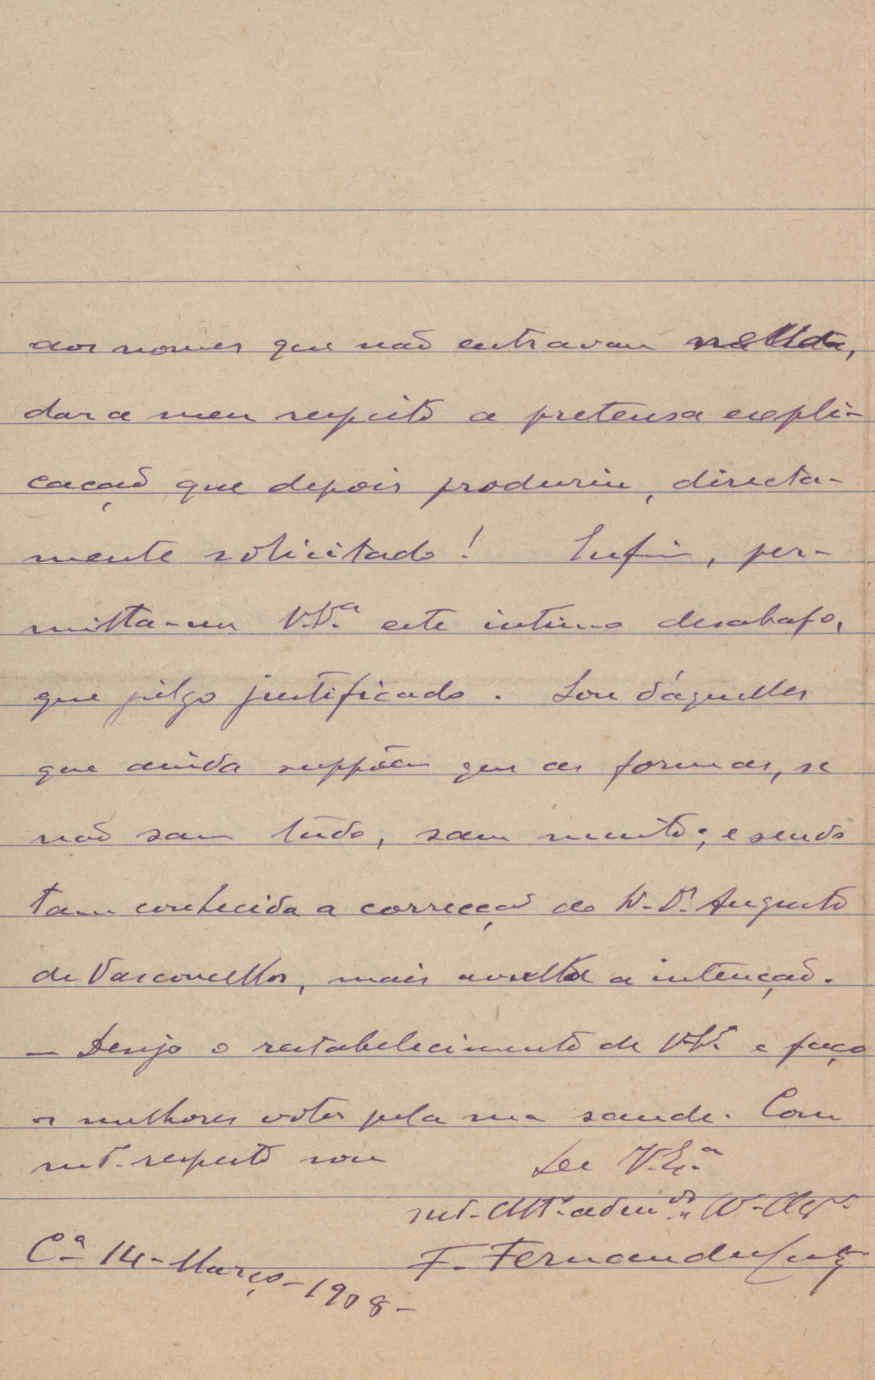 aos nomes que não entravam
dar a meu respeito a pretensa expli-
cação que depois produziu, directa-
mente solicitado! Enfim, per-
mitta-me V. Ex.ª este intimo desabafo,
que julgo justificado. Sou d'aquelles
que ainda suppõem que as formas, se
não sam tudo, sam muito; e sendo
tam conhecida a correcção do Augusto
de Vasconcellos, mais a intenção.
— Desejo o restabelecimento de V. Ex.ª e faço
os melhores votos pela sua saude. Com
mt.º respeito sou De V. Ex.ª
mt.º Att.º
C.ª 14 - Março - 1908 - F. Fernandes Costa